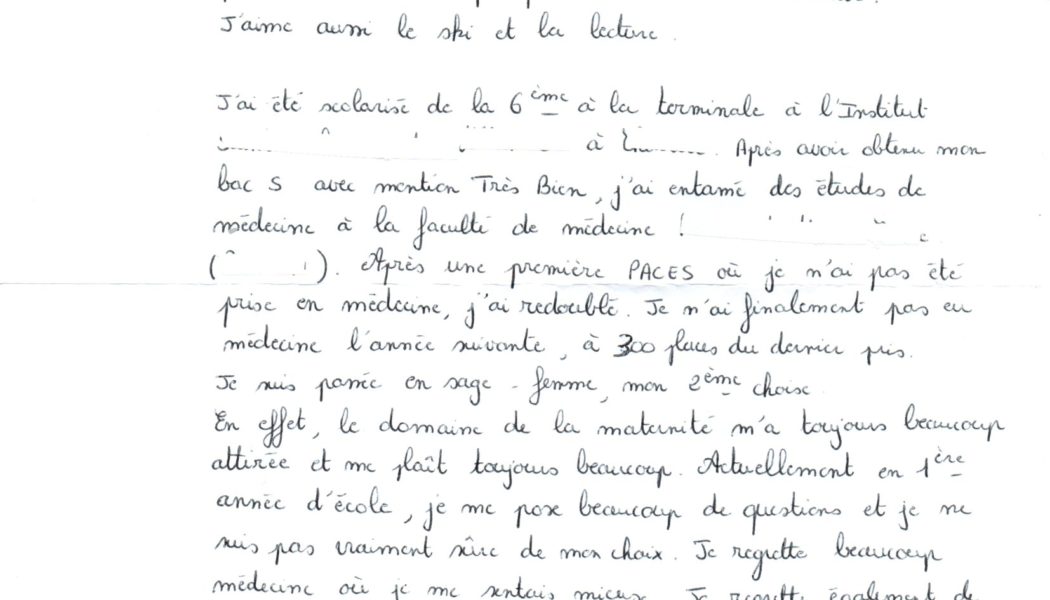 J'aime aussi le ski et la lecture.
J'ai été scolarisé de la 6ème à la terminale à l'Institut
à Après avoir obtenu mon
bac S avec mention Très Bien, j'ai entamé des études de
médecine à la faculté de médecine
( ). Après une première PACES où je n'ai pas été
prise en médecine, j'ai redoublé. Je n'ai finalement pas eu
médecine l'année suivante, à 300 places du dernier pris.
Je suis passée en sage-femme, mon 2ème choix
En effet, le domaine de la maternité m'a toujours beaucoup
attirée et me plaît toujours beaucoup. Actuellement en 1ère
année d'école, je me pose beaucoup de questions et je ne
suis pas vraiment sûre de mon choix. Je regrette beaucoup
médecine où je me sentais mieux. Je regrette également de